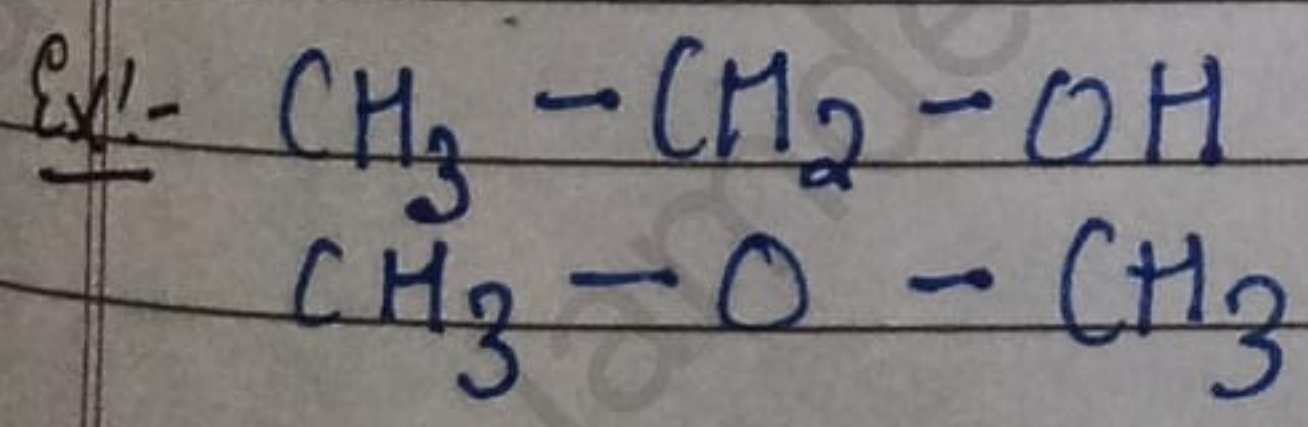 Ex!- CH₃ - CH₂ - OH
CH₃ - O - CH₃